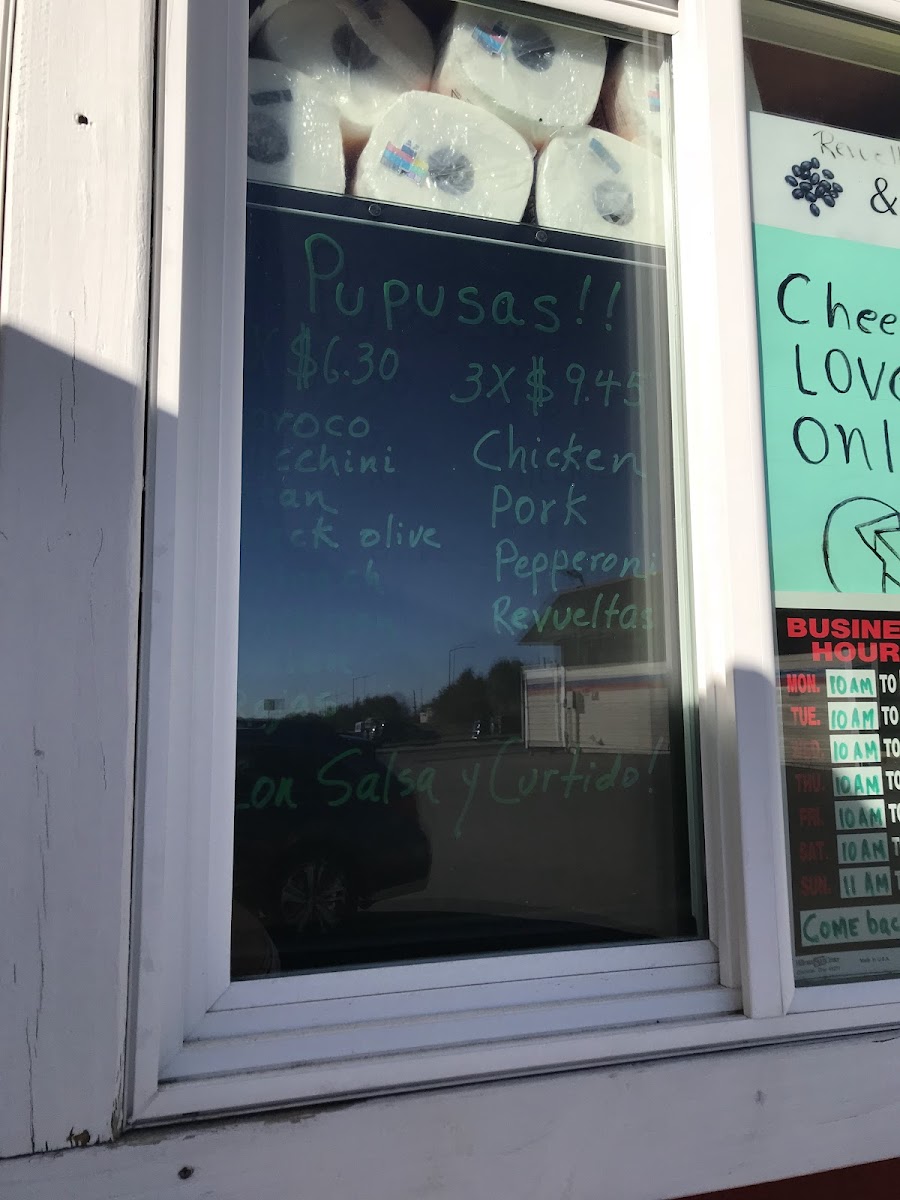 Pupusas!!
$6.30
3X $9.45
roco
cchini
an
ck olive
ch
Chicken
Pork
Pepperoni
Revueltas
con Salsa y Curtido!
Revuel
&
Chee
LOV
Onl
BUSINE
HOUR
MON. 10 AM TO
TUE. 10 AM TO
WED. 10 AM TO
THU. 10 AM TO
FRI. 10 AM TO
SAT. 10 AM T
SUN. 11 AM T
COME bac